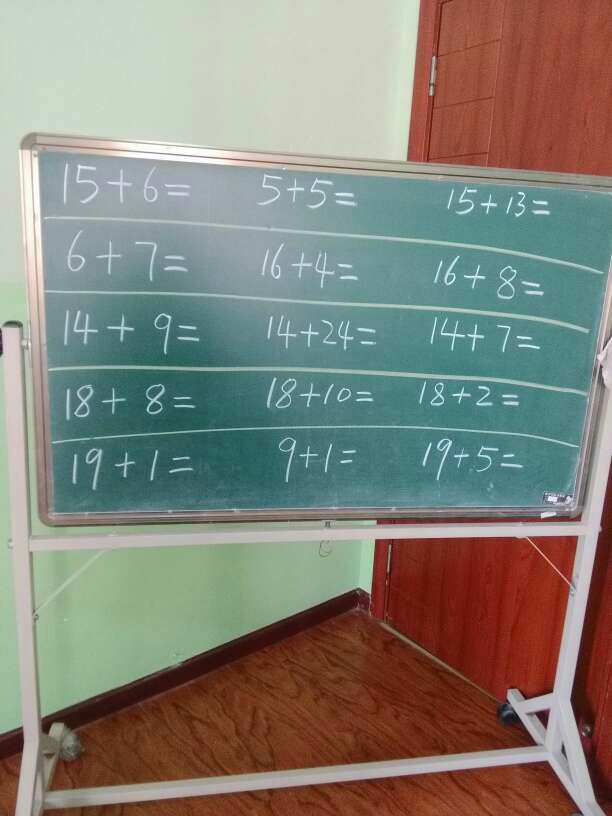 15+6= 5+5= 15+13=
6+7= 16+4= 16+8=
14+9= 14+24= 14+7=
18+8= 18+10= 18+2=
19+1= 9+1= 19+5=